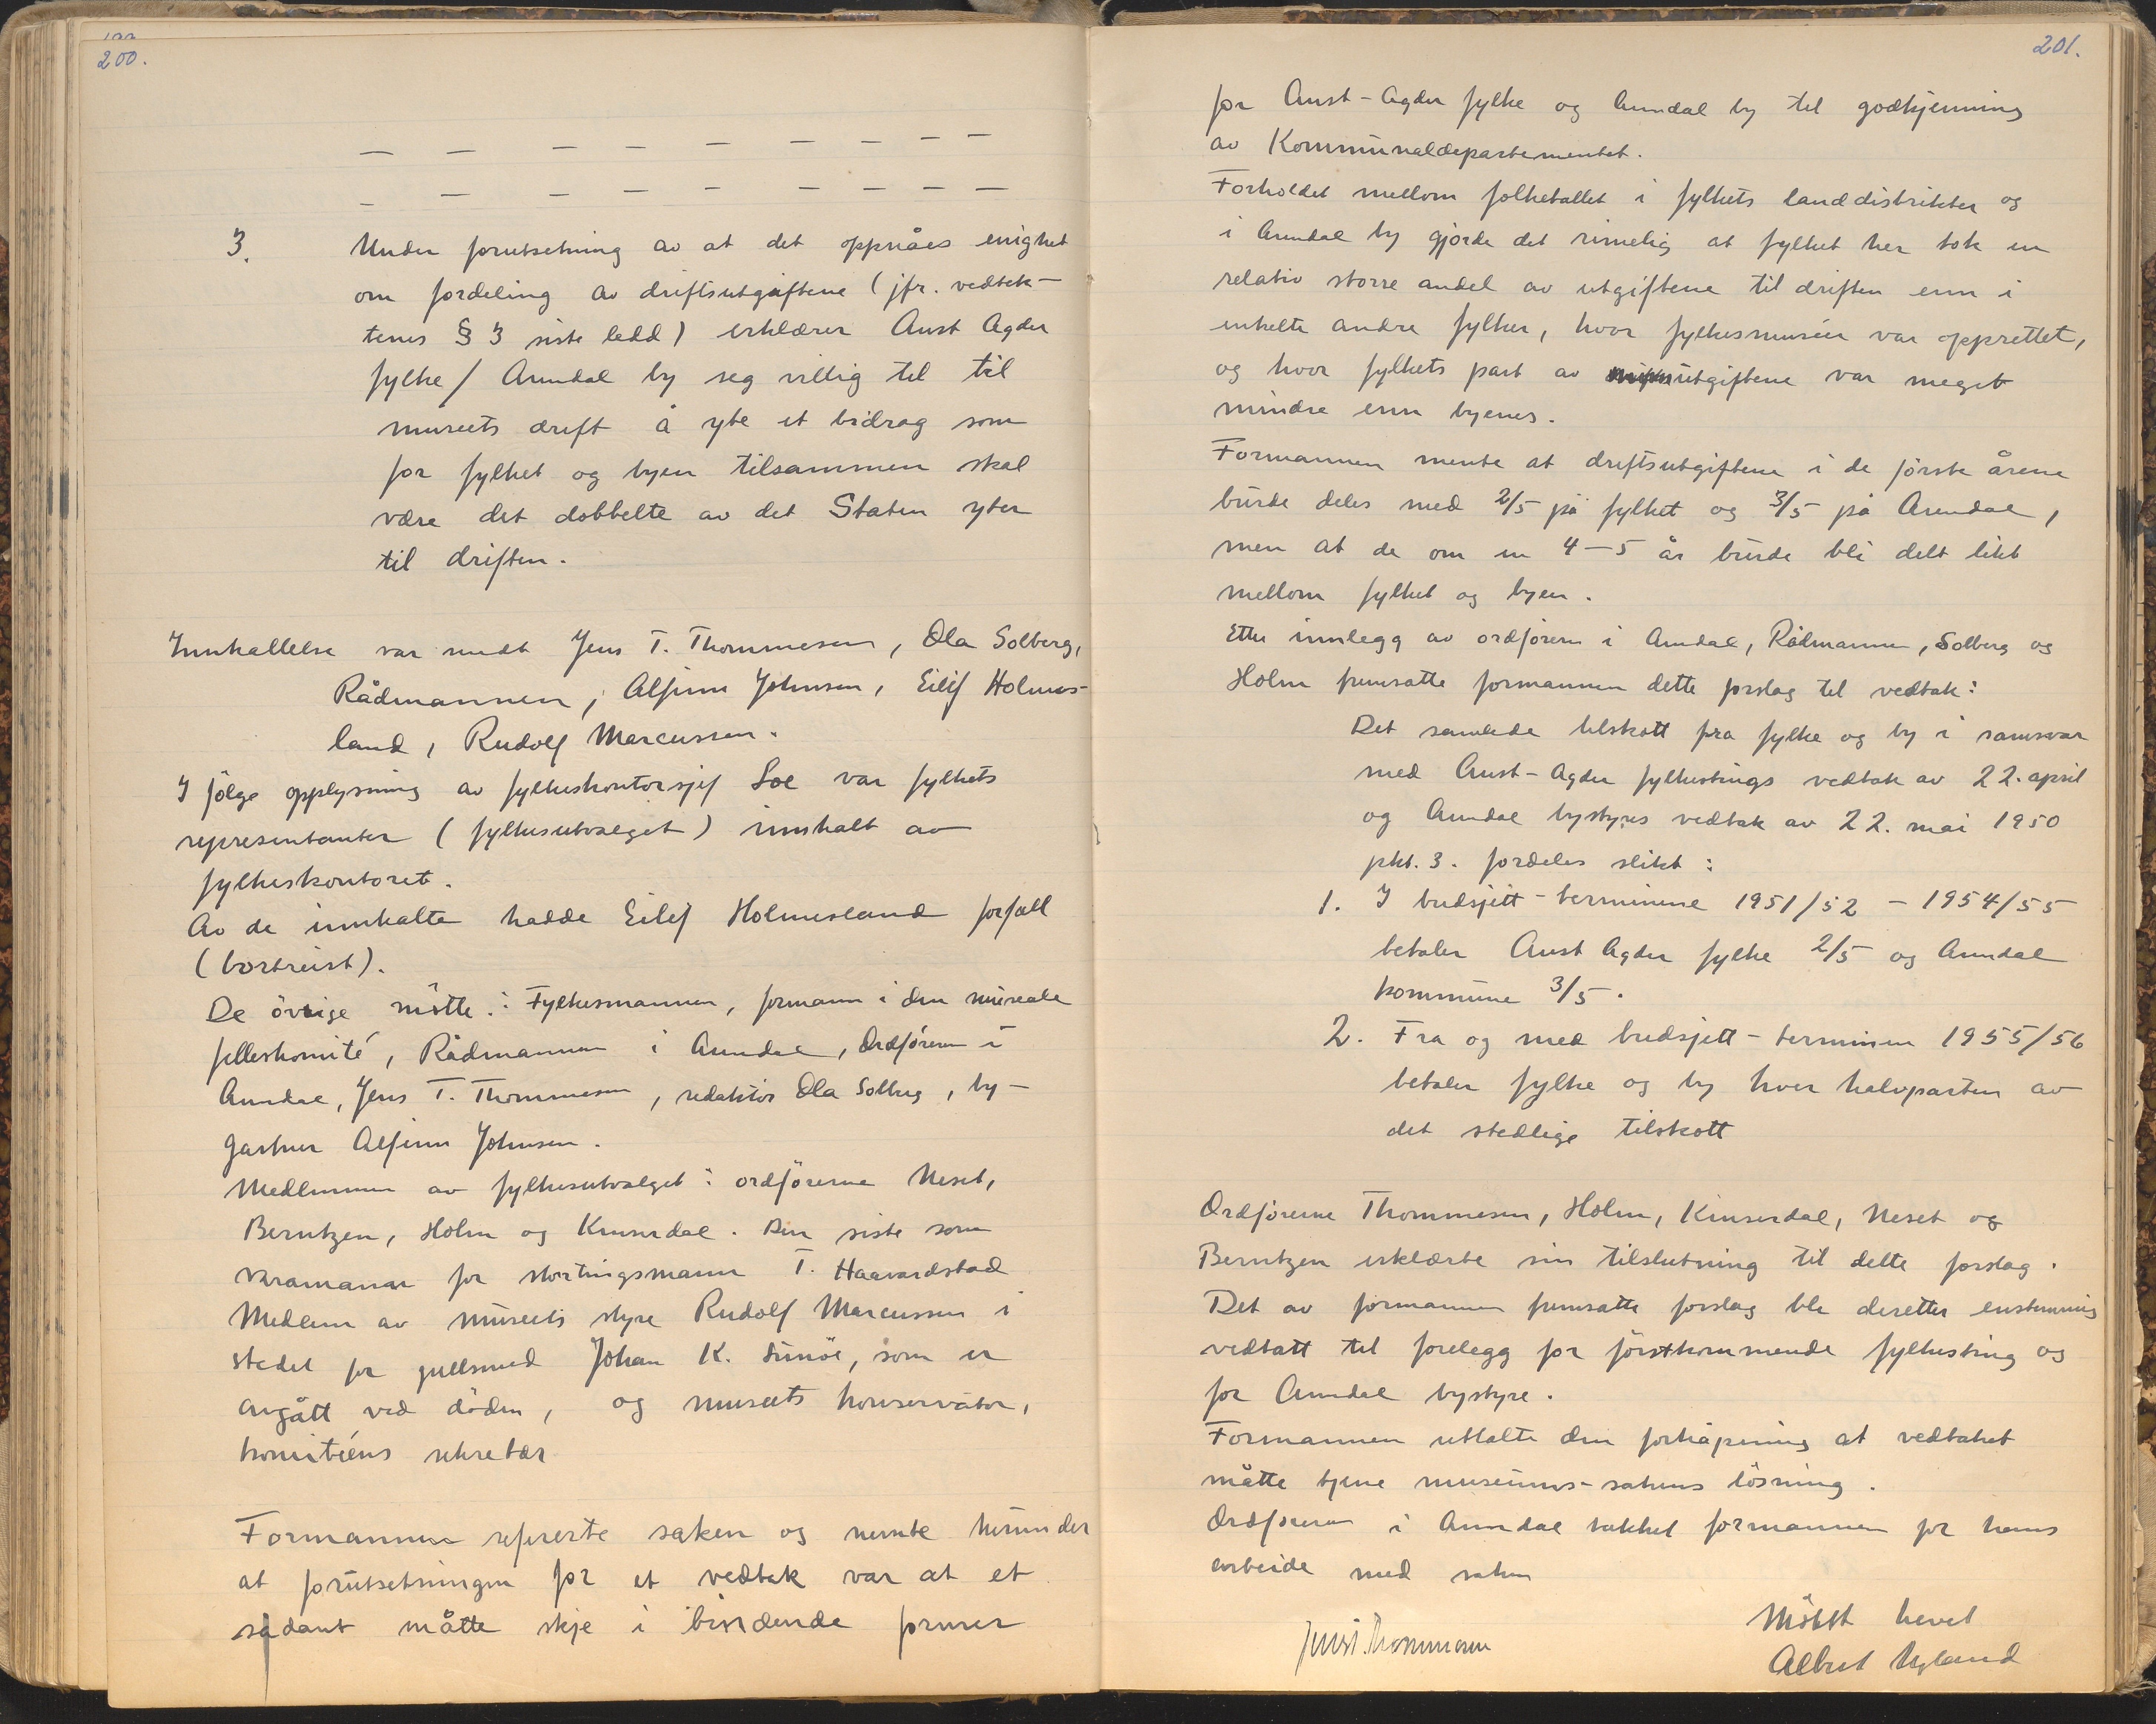 200.
— — — — — — — — —
— — — — — — — — —
3. Under forutsetning av at det oppnåes enighet
om fordeling av driftsutgiftene (jfr. vedtek-
tenes § 3 siste ledd) erklærer Aust Agder
fylke / Arendal by seg villig til til
museets drift å yte et bidrag som
for fylket og byen tilsammen skal
være det dobbelte av det Staten yter
til driften.
Innkallelse var sendt Jens T. Thommesen, Ola Solberg,
Rådmannen, Alfinn Johnsen, Eilif Holmes-
land, Rudolf Marcussen.
I følge opplysning av fylkeskontorsjef Loe var fylkets
representanter (fylkesutvalget) innkalt av
fylkeskontoret.
Av de innkalte hadde Eilif Holmesland forfall
(bortreist).
De øvrige møtte: Fylkesmannen, formann i den museale
felleskomité, Rådmannen i Arendal, Ordføreren i
Arendal, Jens T. Thommesen, redaktør Ola Solberg, by-
gartner Alfinn Johnsen.
Medlemmer av fylkesutvalget: ordførerne Neset,
Berntzen, Holm og Kinserdal. Den siste som
varamann for stortingsmann T. Haavardstad
Medlem av museets styre Rudolf Marcussen i
stedet for gullsmed Johan K. , som er
avgått ved døden, og museets konservator,
komitéens sekretær
Formannen refererte saken og nevnte herunder
at forutsetningen for et vedtak var at et
sådant måtte skje i bindende former
201.
for Aust-Agder fylke og Arendal by til godkjenning
av Kommunaldepartementet.
Forholdet mellom folketallet i fylkets landdistrikter og
i Arendal by gjorde det rimelig at fylket her tok en
relativ større andel av utgiftene til driften enn i
enkelte andre fylker, hvor fylkesmuséer var opprettet,
og hvor fylkets part av utgiftene var meget
mindre enn byenes.
Formannen mente at driftsutgiftene i de første årene
burde deles med 2/5 på fylket og 3/5 på Arendal,
men at de om en 4-5 år burde bli delt likt
mellom fylket og byen.
Etter innlegg av ordføreren i Arendal, Rådmannen, Solberg og
Holm fremsatte formannen dette forslag til vedtak:
Det samlede tilskott fra fylke og by i samsvar
med Aust-Agder fylkestings vedtak av 22. april
og Arendal bystyres vedtak av 22. mai 1950
pkt. 3. fordeles slikt:
1. I budsjett-terminene 1951/52 - 1954/55
betaler Aust Agder fylke 2/5 og Arendal
kommune 3/5.
2. Fra og med budsjett-terminen 1955/56
betaler fylke og by hver halvparten av
det stedlige tilskott
Ordførerne Thommesen, Holm, Kinserdal, Neset og
Berntzen erklærte sin tilslutning til dette forslag.
Det av formannen fremsatte forslag ble deretter enstemmig
vedtatt til forelegg for førstkommende fylkesting og
for Arendal bystyre.
Formannen uttalte den forhåpning at vedtaket
måtte tjene museums-sakens løsning.
Ordføreren i Arendal takket formannen for hans
arbeide med saken
Møtet hevet
Jens T. Thommesen
Albert Ugland